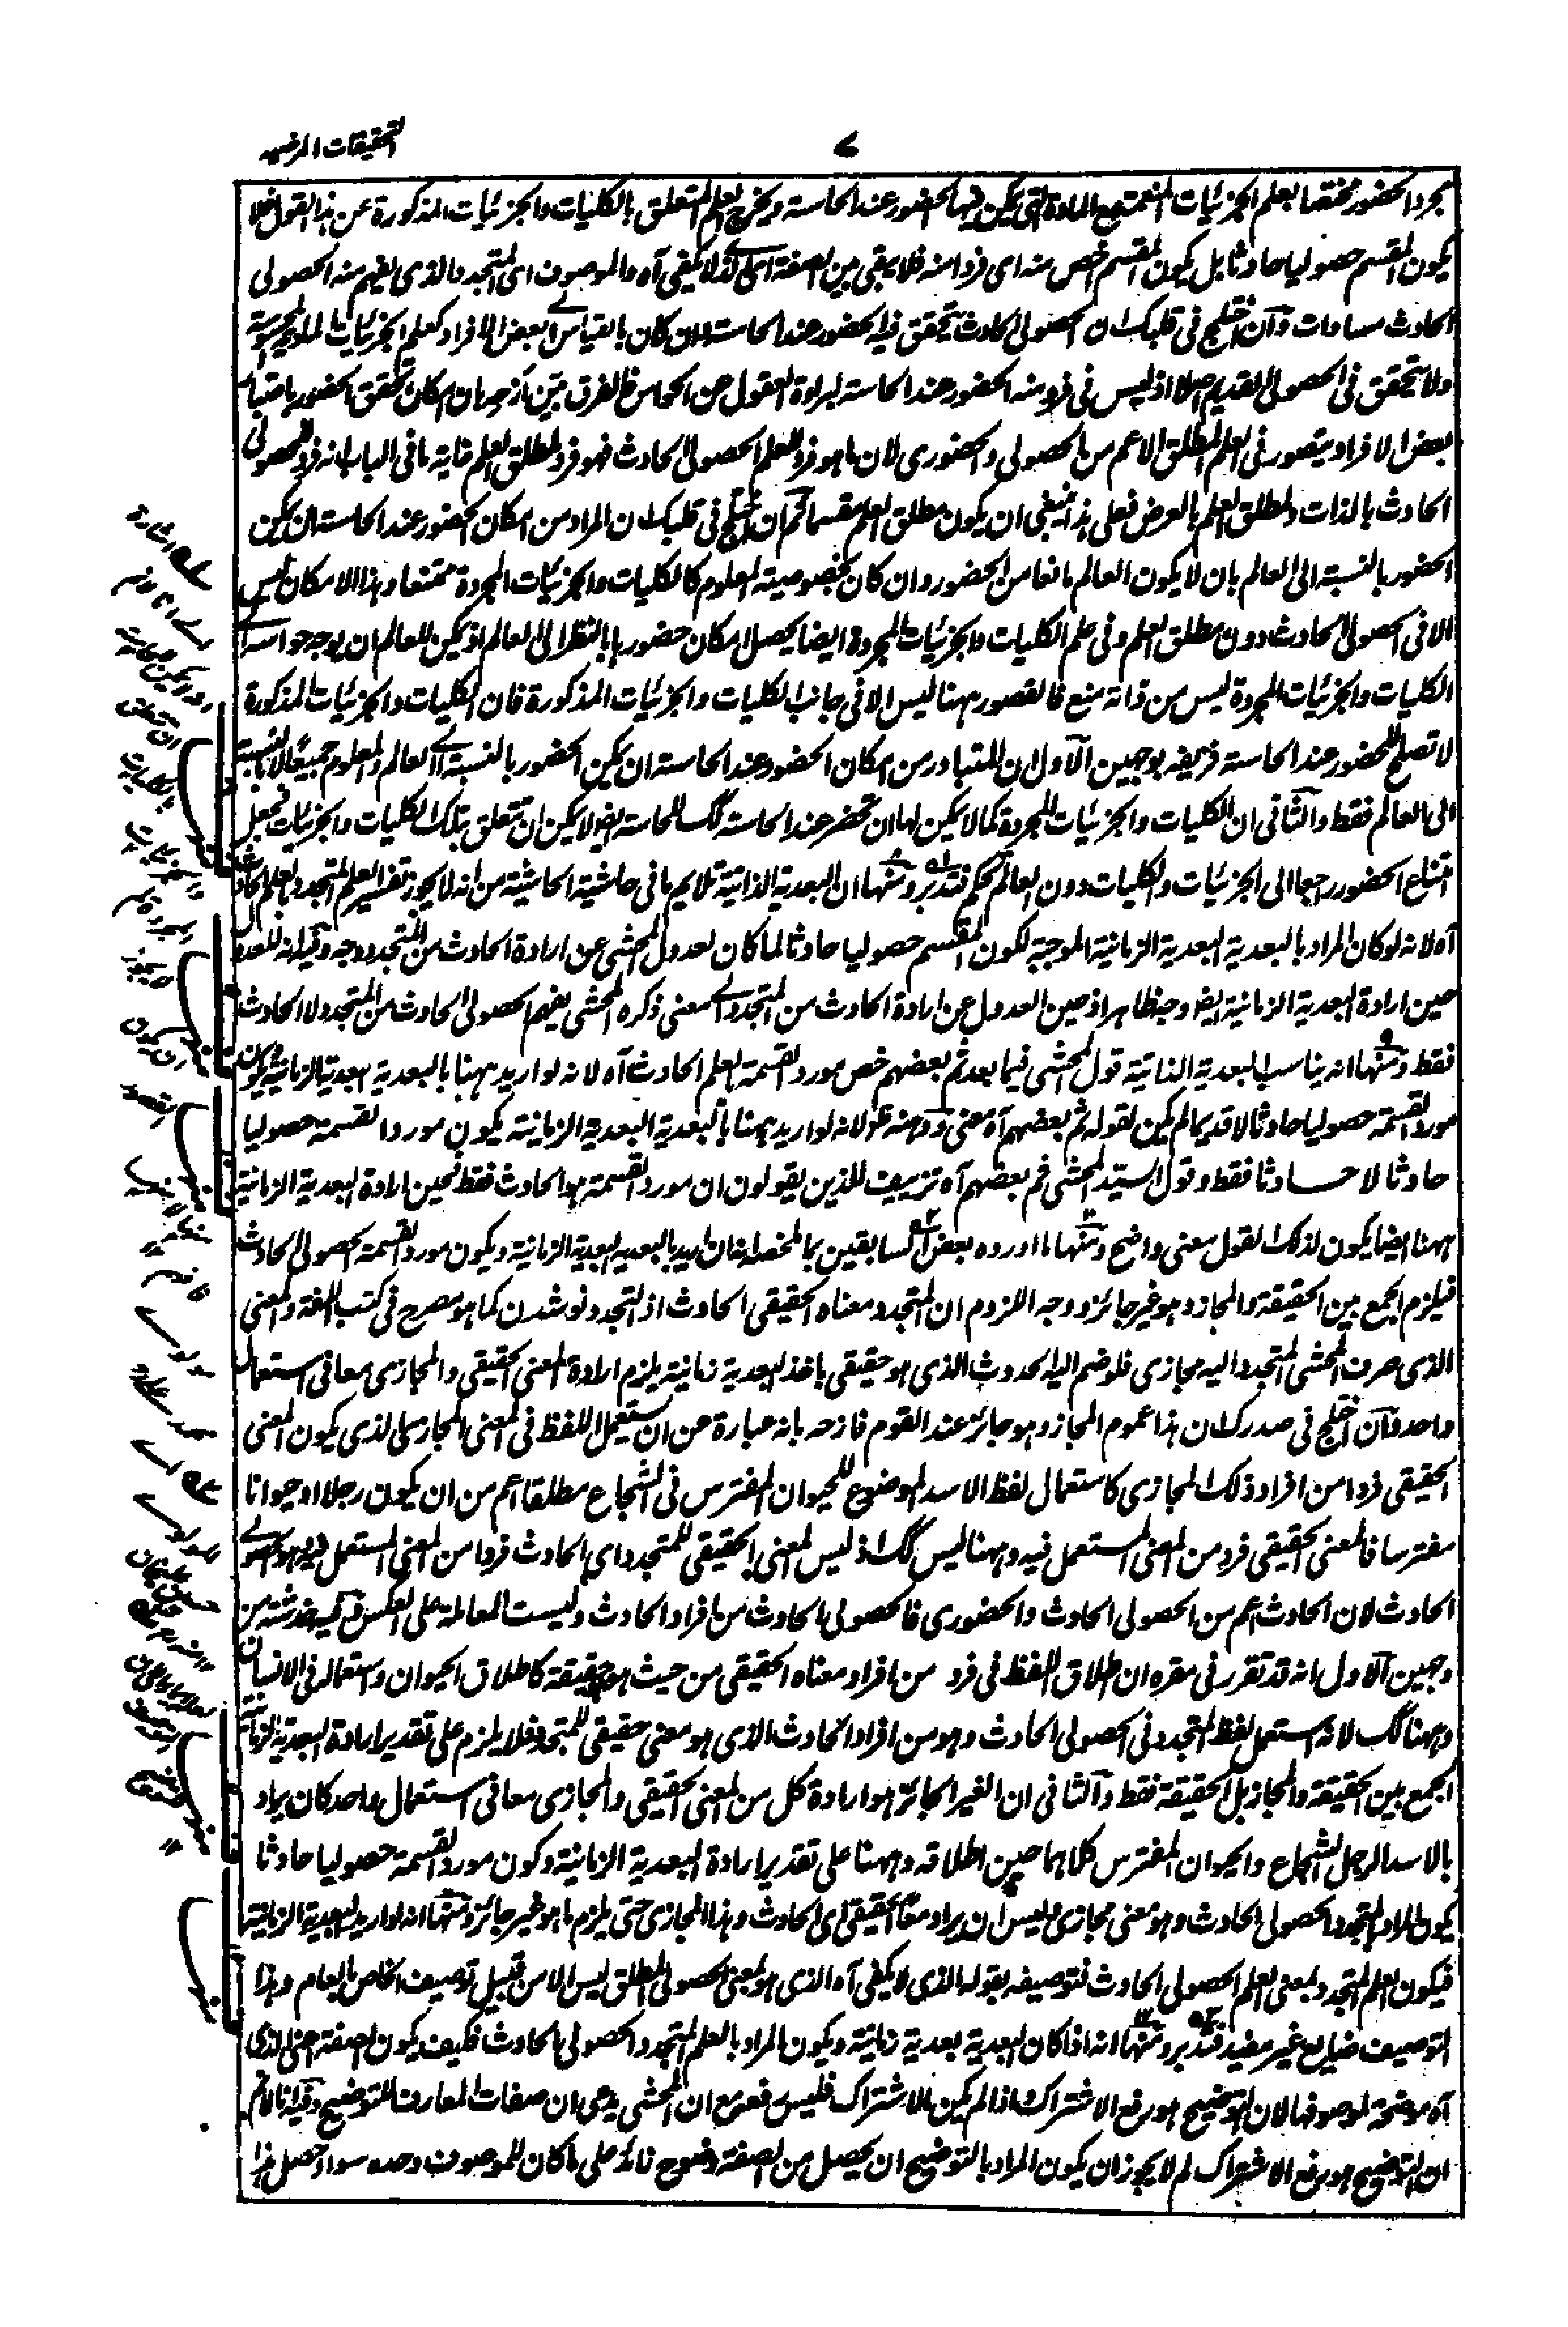 التحقيقات المرضيه
٧
مجرد الحضور مختصا بعلم الجزئيات المنغمسة مع المادة التى يمكن فيها الحضور عند الحاسة ويخرج العلم المتعلق بالكليات والجزئيات المذكورة عن هذا القول فلا
يكون المقسم حصوليا حادثا بل يكون المقسم اخص منه اى فردا منه فلا يبقى بين الصفة اى الذى لا يكفى آه والموصوف اى المتجدد الذى يفهم منه الحصولى
الحادث مساوات وآن اختلج فى قلبك ان الحصولى الحادث يتحقق فيه الحضور عند الحاسة وان كان بالقياس الى بعض الافراد كعلم الجزئيات المادية المحسوسة
ولا يتحقق فى الحصولى القديم اصلا اذ ليس فى فرد منه الحضور عند الحاسة لبراءة العقول عن الحواس فالفرق بيّن فازحه بان امكان تحقق الحضور باعتبار
بعض الافراد يتصور فى العلم المطلق الاعم من الحصولى والحضورى لان ما هو فرد للعلم الحصولى الحادث فهو فرد لمطلق العلم غاية ما فى الباب انه فرد للحصولى
الحادث بالذات ولمطلق العلم بالعرض فعلى هذا ينبغى ان يكون مطلق العلم مقسما ثم آن اختلج فى قلبك ان المراد من امكان الحضور عند الحاسة ان يمكن
الحضور بالنسبة الى العالم بان لا يكون العالم مانعا من الحضور وان كان بخصوصية المعلوم كالكليات والجزئيات المجردة ممتنعا وهذا الامكان ليس
الا فى الحصولى الحادث دون مطلق العلم وفى علم الكليات والجزئيات المجردة ايضا يحصل امكان حضورها بالنظر الى العالم اذ يمكن للعالم ان يوجه حواسه الى
الكليات والجزئيات المجردة ليس من ذاته منع فالقصور ههنا ليس الا فى جانب الكليات والجزئيات المذكورة فان الكليات والجزئيات المذكورة
لا تصلح للحضور عند الحاسة فزيفه بوجهين الآول ان المتبادر من امكان الحضور عند الحاسة ان يمكن الحضور بالنسبة الى العالم والمعلوم جميعًا لا بالنسبة
الى العالم فقط والثانى ان الكليات والجزئيات المجردة كما لا يمكن لها ان تحضر عند الحاسة كك للحاسة ايضا لا يمكن ان تتعلق بتلك الكليات والجزئيات فجعل
امتناع الحضور راجعا الى الجزئيات والكليات دون العالم تحكم فتدبر ومنها ان البعدية الذاتية تلايم ما فى حاشية الحاشية من انه لا يجوز تفسير العلم المتجدد بالعلم الحادث
آه لانه لو كان المراد بالبعدية البعدية الزمانية الموجبة لكون المقسم حصوليا حادثا لما كان لعدول المحشى عن ارادة الحادث من المتجدد وجه وفيه انه للعدول
حين ارادة البعدية الزمانية ايضا وجها ظاهرا اذ حين العدول عن ارادة الحادث من المتجدد الى معنى ذكره المحشى يفهم الحصولى الحادث من المتجدد لا الحادث
فقط ومنها انه يناسب البعدية الذاتية قول المحشى فيما بعد ثم بعضهم خص مورد القسمة بالعلم الحادث آه لانه لو اريد ههنا بالبعدية البعدية الزمانية ويكون
مورد القسمة حصوليا حادثا لا قديما لم يكن لقوله ثم بعضهم آه معنى ووهنه ظ لانه لو اريد ههنا بالبعدية البعدية الزمانية يكون مورد القسمة حصوليا
حادثا لا حادثا فقط وقول السيد المحشى ثم بعضهم آه تزييف للذين يقولون ان مورد القسمة هو الحادث فقط فحين ارادة البعدية الزمانية
ههنا ايضا يكون لذلك القول معنى واضح ومنها ما اورده بعض السابقين بما ملخصه انه ان اريد بالبعدية البعدية الزمانية ويكون مورد القسمة الحصولى الحادث
فيلزم الجمع بين الحقيقة والمجاز وهو غير جائز ووجه اللزوم ان المتجدد معناه الحقيقى الحادث اذ التجدد نو شدن كما هو مصرح فى كتب اللغة والمعنى
الذى صرف المحشى المتجدد اليه مجازى فلو ضم اليه الحدوث الذى هو حقيقى باخذ البعدية زمانية يلزم ارادة المعنى الحقيقى والمجازى معا فى استعمال
واحد وآن اختلج فى صدرك ان هذا عموم المجاز وهو جائز عند القوم فازحه بانه عبارة عن ان يستعمل اللفظ فى المعنى المجازى الذى يكون المعنى
الحقيقى فردا من افراد ذلك المجازى كاستعمال لفظ الاسد الموضوع للحيوان المفترس فى الشجاع مطلقا اعم من ان يكون رجلا او حيوانا
مفترسا فالمعنى الحقيقى فرد من المعنى المستعمل فيه وههنا ليس كك اذ ليس المعنى الحقيقى للمتجدد اى الحادث فردا من المعنى المستعمل فيه وهو الحصولى
الحادث لان الحادث اعم من الحصولى الحادث والحضورى فالحصولى الحادث من افراد الحادث وليست المعاملة على العكس وفيه خدشة من
وجهين الآول انه قد تقرر فى مقره ان اطلاق اللفظ فى فرد من افراد معناه الحقيقى من حيث هو حقيقة كاطلاق الحيوان واستعماله فى الانسان
وههنا كك لانه استعمل لفظ المتجدد فى الحصولى الحادث وهو من افراد الحادث الذى هو معنى حقيقى للمتجدد فلا يلزم على تقدير ارادة البعدية الزمانية
الجمع بين الحقيقة والمجاز بل الحقيقة فقط والثانى ان الغير الجائز هو ارادة كل من المعنى الحقيقى والمجازى معا فى استعمال واحد كان يراد
بالاسد الرجل الشجاع والحيوان المفترس كلاهما حين اطلاقه وههنا على تقدير ارادة البعدية الزمانية وكون مورد القسمة حصوليا حادثا
يكون المراد بالمتجدد الحصولى الحادث وهو معنى مجازى وليس ان يراد معناه الحقيقى اى الحادث وهذا المجازى حتى يلزم ما هو غير جائز ومنها انه لو اريد البعدية الزمانية
فيكون العلم المتجدد بمعنى العلم الحصولى الحادث فتوصيفه بقوله الذى لا يكفى آه الذى هو بمعنى الحصولى المطلق ليس الا من قبيل توصيف الخاص بالعام وهذا
التوصيف ضايع غير مفيد فتدبر ومنها انه اذا كان البعدية بعدية زمانية ويكون المراد بالعلم المتجدد الحصولى الحادث فكيف يكون الصفة اعنى الذى
آه موضحة لموصوفها لان التوضيح هو رفع الاشتراك واذا لم يكن الاشتراك فليس رفعه مع ان المحشى يدعى ان صفات المعارف للتوضيح وفيه انا لا نم
ان التوضيح هو رفع الاشتراك لم لا يجوز ان يكون المراد بالتوضيح ان يحصل من الصفة وضوح زائد على ما كان للموصوف وحده سواء حصل هذا